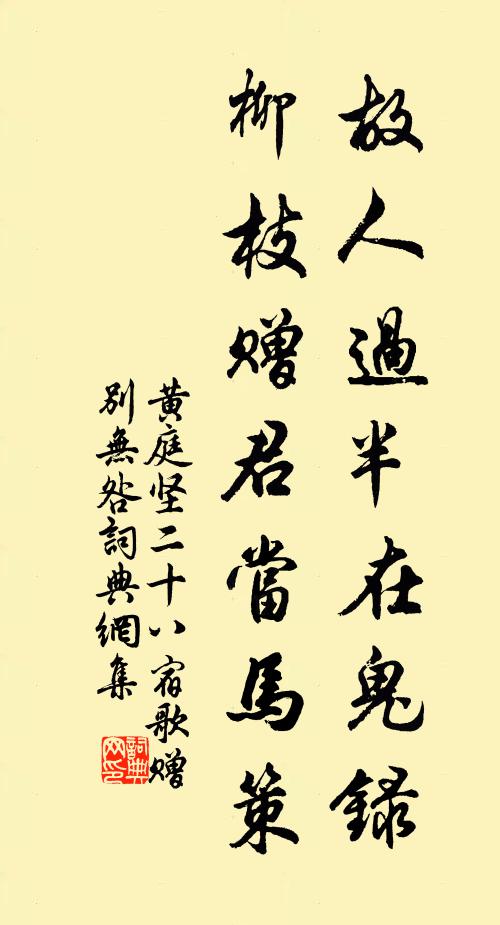 故人過半在鬼錄
柳枝贈君當馬策
黄庭坚二十八宿歌贈
別無咎詞典網集
詞典
网印